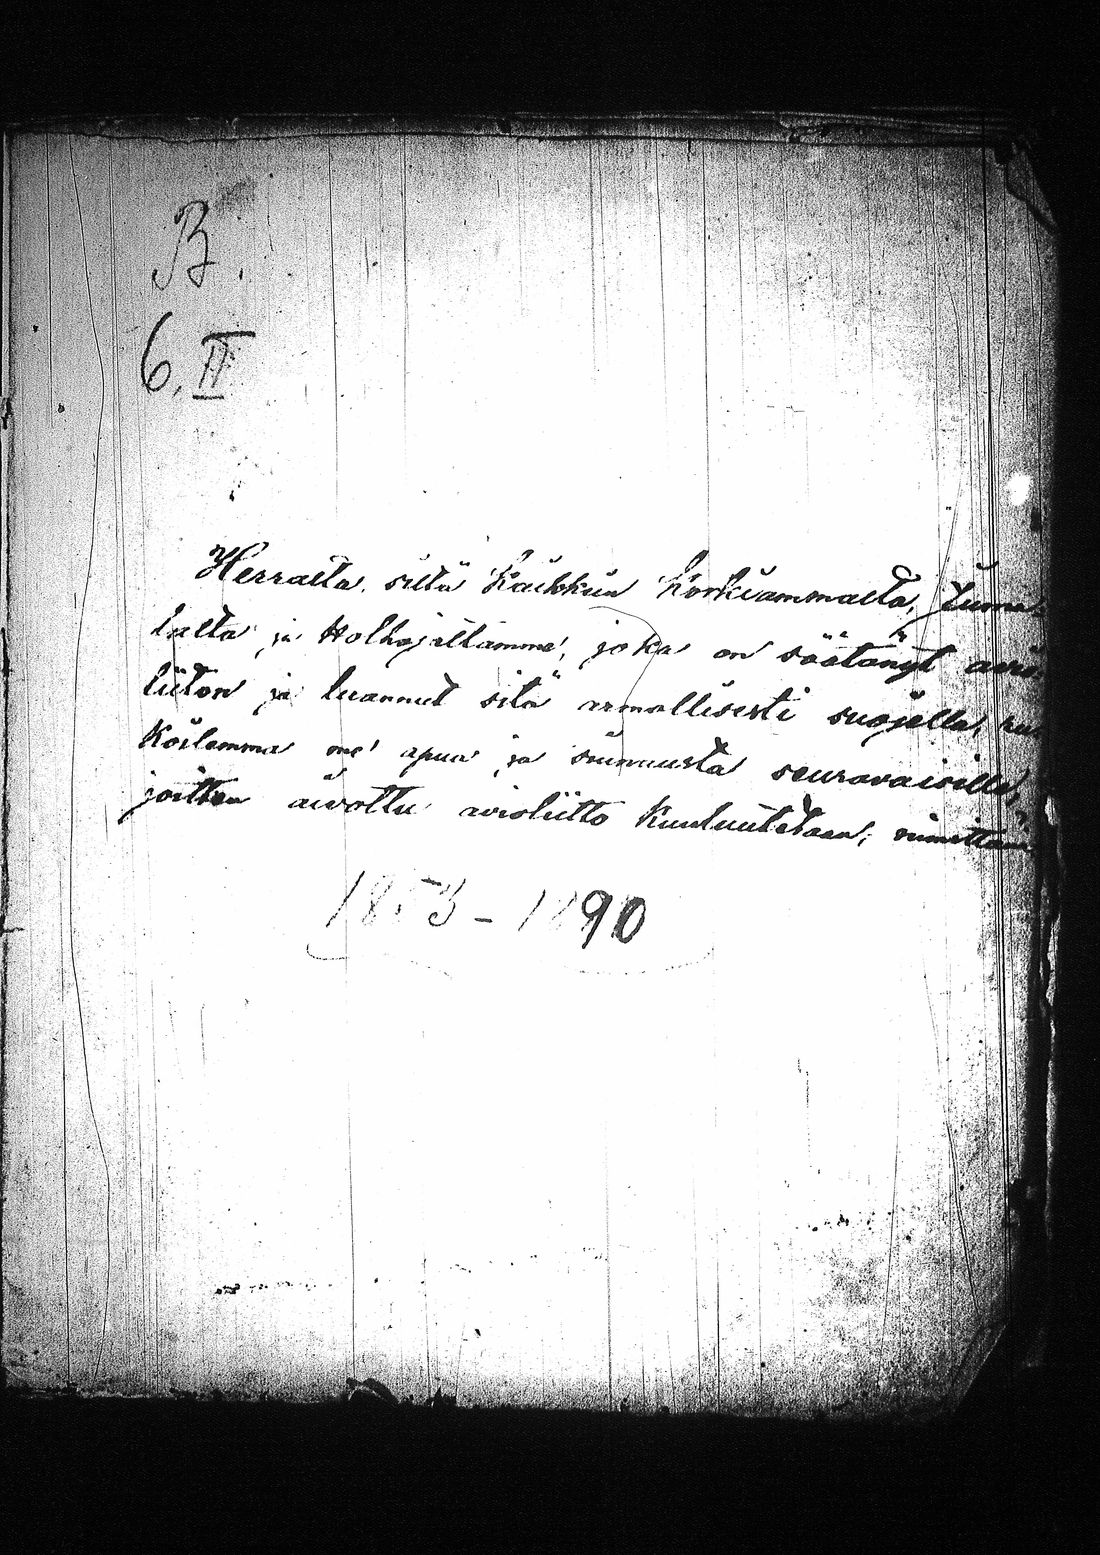 B.
6. II
Herralta, siltä kaikkiin korkiammalta, Juma-
lalta ja Holhojaltamme, joka on säätänyt avio-
liiton ja luannut sitä armollisesti suojella, ru-
koilemma me apua ja siunausta seuravaisille,
joitten aivottu avioliitto kuuluutetaan, nimittäin
1853-1890